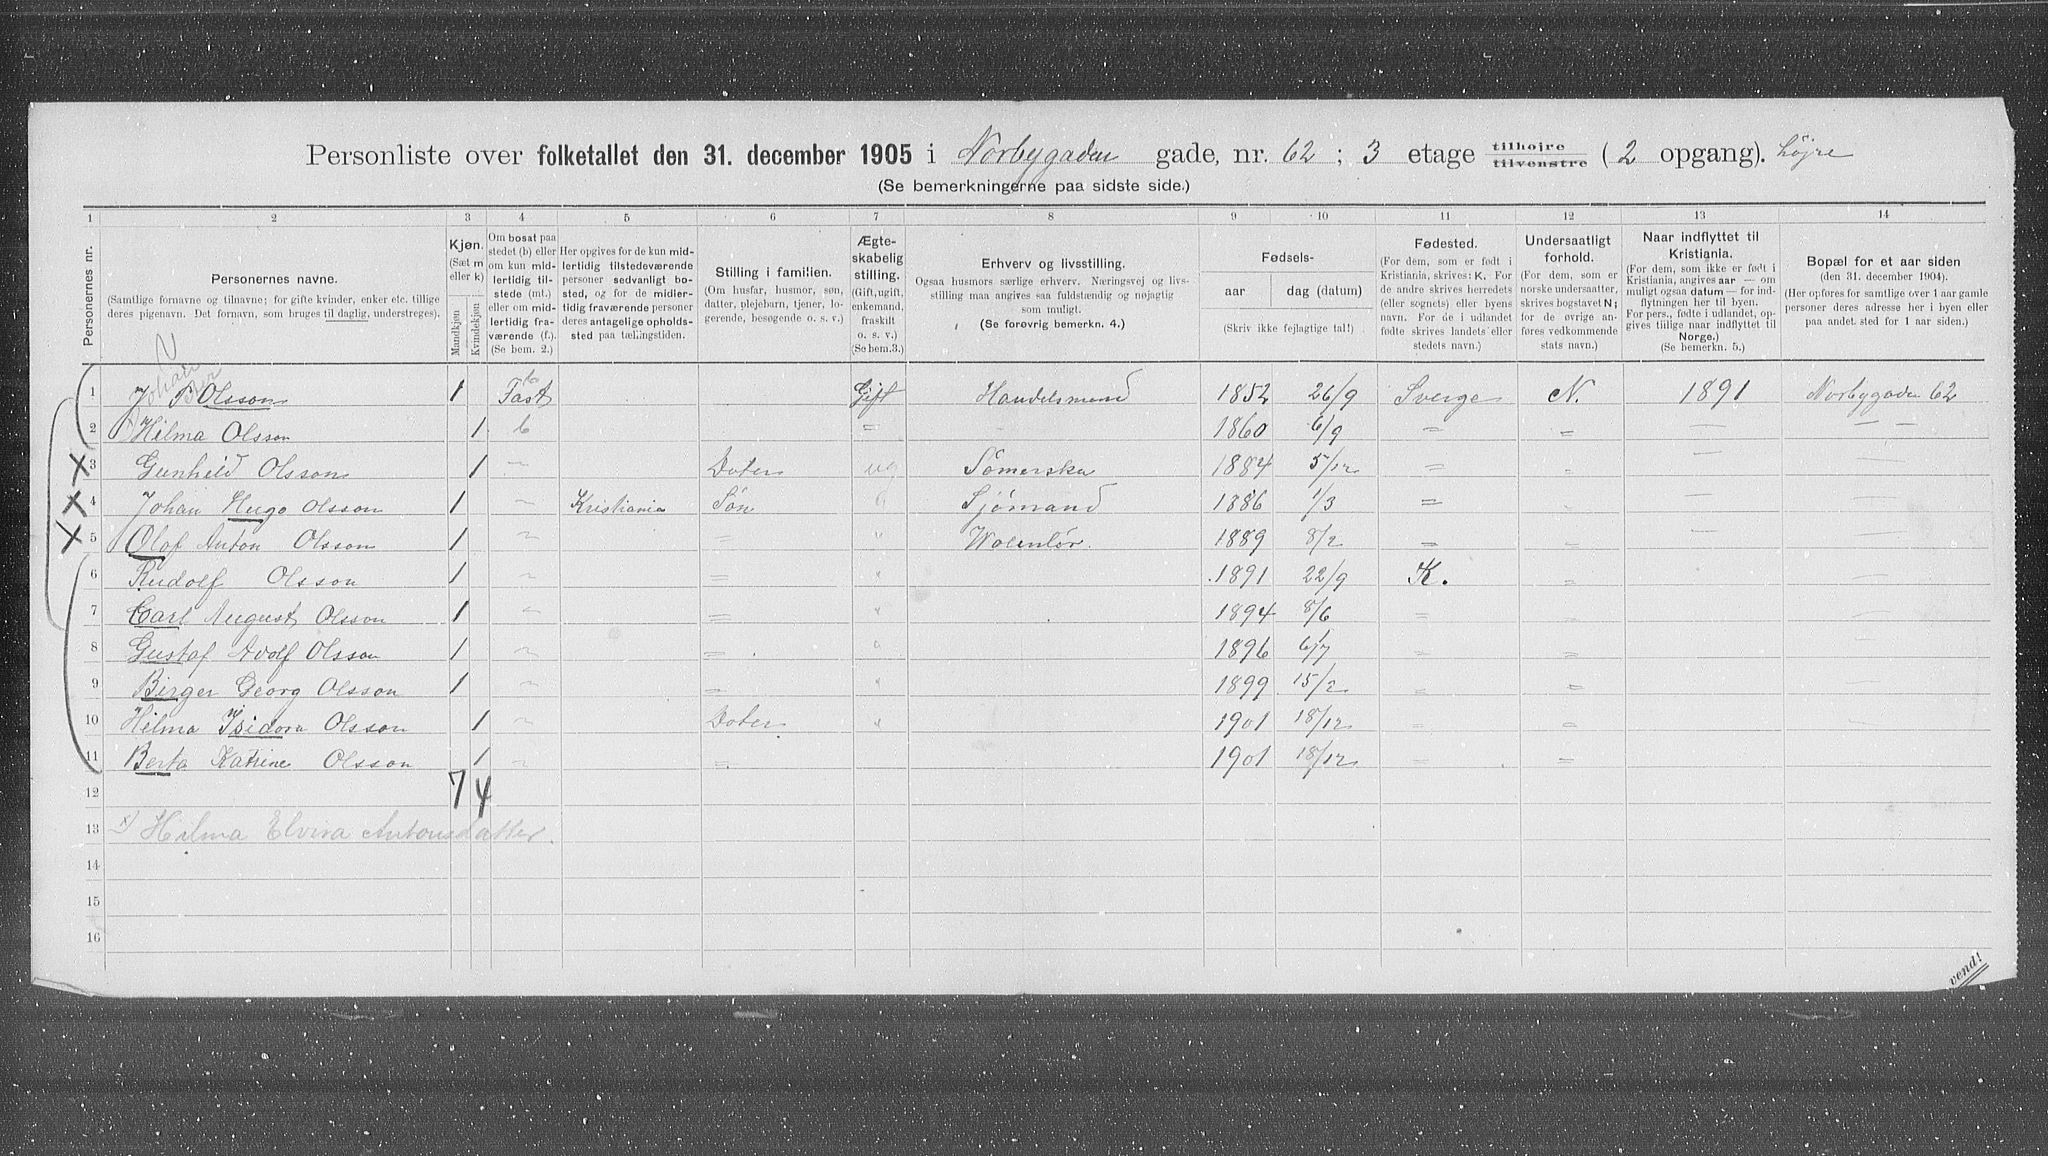 Personliste over folketallet den 31. december 1905 i Norbygaden gade, nr. 62; 3 etage tilhøjre tilvenstre (2 opgang). højre
(Se bemerkningerne paa sidste side.)
1 2 3 4 5 6 7 8 9 10 11 12 13 14
Personernes nr.
Personernes navne.
(Samtlige fornavne og tilnavne; for gifte kvinder, enker etc. tillige
deres pigenavn. Det fornavn, som bruges til daglig, understreges).
Kjøn.
(Sæt m
eller k)
Mandkjøn
Kvindekjøn
Om bosat paa
stedet (b) eller
om kun mid-
lertidig til-
stede (mt.)
eller om mid-
lertidig fra-
værende (f.).
(Se bem. 2.)
Her opgives for de kun mid-
lertidig tilstedeværende
personer sedvanlig bo-
sted, og for de midler-
tidig fraværende personer
deres antagelige opholds-
sted paa tællingstiden.
Stilling i familien.
(Om husfar, husmor, søn,
datter, plejebarn, tjener, lo-
gerende, besøgende o. s. v.)
Ægte-
skabelig
stilling.
(Gift, ugift,
enkemand,
fraskilt
o. s. v.)
(Se bem.3.)
Erhverv og livsstilling.
Ogsaa husmors særlige erhverv. Næringsvej og livs-
stilling maa angives saa fuldstændig og nøjagtig
som muligt.
(Se forøvrig bemerkn. 4.)
Fødsels-
aar dag (datum)
(Skriv ikke fejlagtige tal!)
Fødested.
(For dem, som er født i
Kristiania, skrives: K. For
de andre skrives herredets
(eller sognets) eller byens
navn. For de i udlandet
fødte skrives landets eller
stedets navn.)
Undersaatligt
forhold.
(For dem, som er
norske undersaatter,
skrives bogstavet N;
for de øvrige an-
føres vedkommende
stats navn.)
Naar indflyttet til
Kristiania.
(For dem, som ikke er født i
Kristiania, angives aar — om
muligt ogsaa datum — for ind-
flytningen her til byen.
For pers., fødte i udlandet, op-
gives tillige naar indflyttet til
Norge.)
(Se bemerkn. 5.)
Bopæl for et aar siden
(den 31. december 1904).
(Her opføres for samtlige over 1 aar gamle
personer deres adresse her i byen eller
paa andet sted for 1 aar siden.)
Johan
1 B Olsson 1 Fast b Gift Handelsmand 1852 26/9 Sverge N. 1891 Norbygaden 62
2 x) Hilma Olsson 1 b = - 1860 6/9 = = — — —
x 3 Gunhild Olsson 1 " Doter ug Sömerska 1884 5/12 = = — —
x 4 Johan Hugo Olsson 1 " Kristiania Sön Sjömand 1886 1/3 = — —
x 5 Olaf Anton Olsson 1 " = " 1889 8/2 = = — —
6 Rudolf Olsson 1 " = " 1891 22/9 K. =
7 Carl August Olsson 1 " = " 1894 8/6 = = —
8 Gustaf Adolf Olsson 1 " = " 1896 6/7 = = —
9 Birger Georg Olsson 1 " = " 1899 15/2 = = —
10 Hilma Isidora Olsson 1 " Doter " 1901 18/12 = = —
11 Berta Katrine Olsson 1 " = 1901 18/12 = = —
12 7 4
13 x) Hilma Elvira Antonsdatter.
14
15
16
vend!